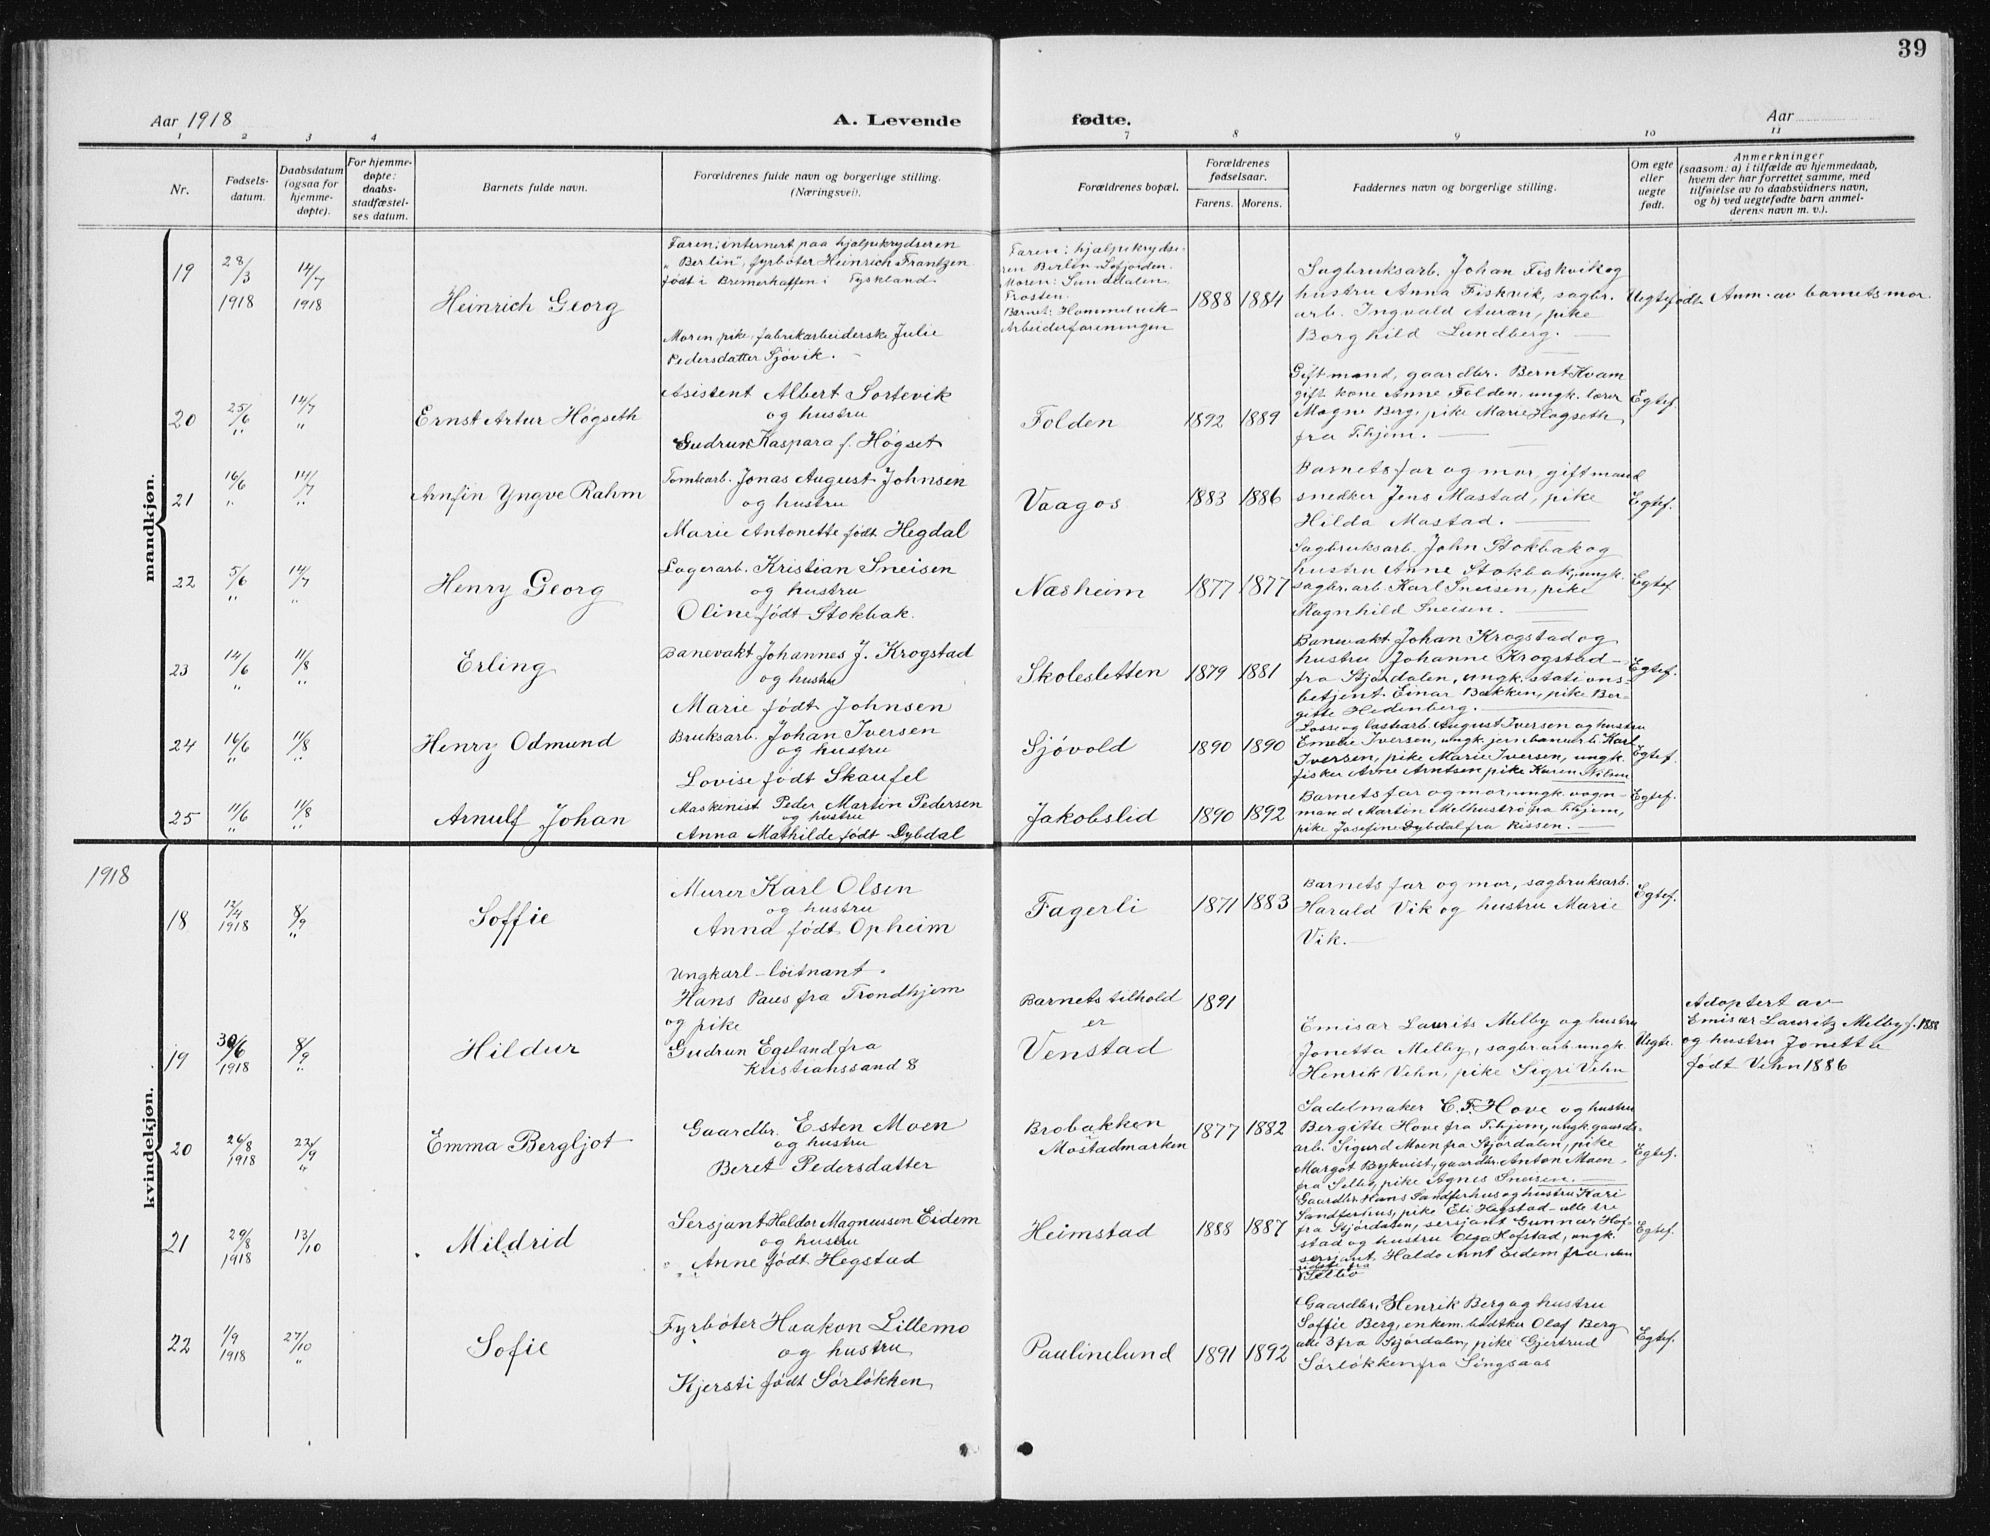 39
Aar 1918 A. Levende fødte. Aar
1 2 3 4 7 8 9 10 11
Nr.
Fødsels-
datum.
Daabsdatum
(ogsaa for
hjemme-
døpte).
For hjemme-
døpte:
daabs-
stadfæstel-
ses datum.
Barnets fulde navn.
Forældrenes fulde navn og borgerlige stilling.
(Næringsvei).
Forældrenes bopæl.
Forældrenes
fødselsaar.
Farens. Morens.
Faddernes navn og borgerlige stilling.
Om egte
eller
uegte
født.
Anmerkninger
(saasom: a) i tilfælde av hjemmedaab,
hvem der har forrettet samme, med
tilføielse av to daabsvidners navn,
og b) ved uegtefødte barn anmel-
derens navn m. v.).
mandkjøn.
19
28/3
1918
14/7
1918
Heinrich Georg
Faren: internert paa hjælpekrydseren
"Berlin", fyrbøter Heinrich Frantzen
født i Bremerhaffen i Tyskland.
Moren, pike, fabrikarbeiderske Julie
Pedersdatter Sjøvik.
Faren: hjælpekrydse-
ren Berlin Lofjorden.
Moren: Sunddalen
Frosten.
Barnet: Hommelvik-
Arbeiderforeningen
1888 1884
Sagbruksarb. Johan Fiskvik og
hustru Anna Fiskvik, sagbr.
arb. Ingvald Auran, pike
Borghild Lundberg.
Uegtefødt Anm. av barnets mor.
20
25/6
"
14/7
"
Ernst Artur Høgseth
Asistent Albert Sortevik
og hustru
Gudrun Kaspara f. Høgset
Folden
1892 1889
Gift mand, gaardbr. Bernt Kvam
gift kone Anne Folden, ungk. lærer
Magne Berg, pike Marie Høgseth
fra Thjem.
Egtef.
21
16/6
"
14/7
"
Arnfin Yngve Rahm
Tomtearb. Jonas August Johnsen
og hustru
Marie Antonette født Hegdal
Vaagos
1883 1886
Barnets far og mor, gift mand
snedker Jens Mastad, pike
Hilda Mastad.
Egtef.
22
5/6
"
14/7
"
Henry Georg
Lagerarb. Kristian Sneisen
og hustru
Oline født Stokbak.
Næsheim
1877 1877
Sagbruksarb. John Stokbak og
hustru Anne Stokbak, ungk.
sagbr. arb. Karl Sneisen, pike
Magnhild Sneisen.
Egtef.
23
14/6
"
11/8
"
Erling
Banevakt Johannes J. Krogstad
og hustru
Marie født Johnsen
Skolesletten
1879 1881
Banevakt Johan Krogstad og
hustru Johanne Krogstad
fra Stjørdalen, ungk. stations-
betjent Einar Bakken, pike Bor-
gitte Hedenberg.
Egtef.
24
16/6
"
11/8
"
Henry Odmund
Bruksarb. Johan Iversen
og hustru
Lovise født Skaufel
Sjøvold
1890 1890
Losse og lastearb. August Iversen og hustru
Emelie Iversen, ungk. jernbanearb. Karl
Iversen, pike Marie Iversen, ungk.
fisker Arne Arntsen pike Karen Nilsen
Egtef.
25
11/6
"
11/8
"
Arnulf Johan
Maskinist Peder Martin Pedersen
og hustru
Anna Mathilde født Dybdal
Jakobslid
1890 1892
Barnets far og mor, ungk. vogn-
mand Martin Melhustrø fra Thjem,
pike Josefine Dybdal fra Rissen.
Egtef.
1918
kvindekjøn.
18
12/4
1918
8/9
"
Soffie
Murer Karl Olsen
og hustru
Anna født Opheim
Fagerli
1871 1883
Barnets far og mor, sagbruksarb.
Harald Vik og hustru Marie
Vik.
Egtef.
19
30/6
1918
8/9
"
Hildur
Ungkarl - løitnant
Hans Paus fra Trondhjem
og pike
Gudrun Egeland fra
Kristianssand S
Barnets tilhold
er
Venstad
1891
Emisær Laurits Melby og hustru
Jonetta Melby, sagbr. arb. ungk.
Henrik Vehn, pike Sigri Vehn
Uegte.
Adoptert av
Emisær Lauritz Melby f. 1888
og hustru Jonetta
født Vehn 1886
20
26/8
1918
22/9
"
Emma Bergljot
Gaardbr. Esten Moen
og hustru
Beret Pedersdatter
Brobakken
Mostadmarken
1877 1882
Sadelmaker C. F. Hove og hustru
Bergitte Hove fra Thjem, ungk. gaards-
arb. Sigurd Moen fra Stjørdalen, pike
Margot Bykvist, gaardbr. Anton Moen
fra Selbu, pike Agnes Sneisen.
Egtef.
21
29/8
1918
13/10
Mildrid
Sersjant Haldor Magnussen Eidem
og hustru
Anne født Hegstad
Heimstad
1888 1887
Gaardbr. Hans Sandferhus og hustru Kari
Sandferhus, pike Eli Hegstad - alle tre
fra Stjørdalen, sersjant Gunnar Hof-
stad og hustru Olga Hofstad, ungk.
sersjant Haldo Arnt Eidem fra den
sidste fra
Selbo
Egtef.
22
1/9
1918
27/10
"
Sofie
Fyrbøter Haakon Lillemo
og hustru
Kjersti født Sørløkken
Paulinelund
1891 1892
Gaardbr. Henrik Berg og hustru
Soffie Berg, enkem. bødtker Olaf Berg
alle 3 fra Stjørdalen, pike Gjertrud
Sørløkken fra Singsaas
Egtef.